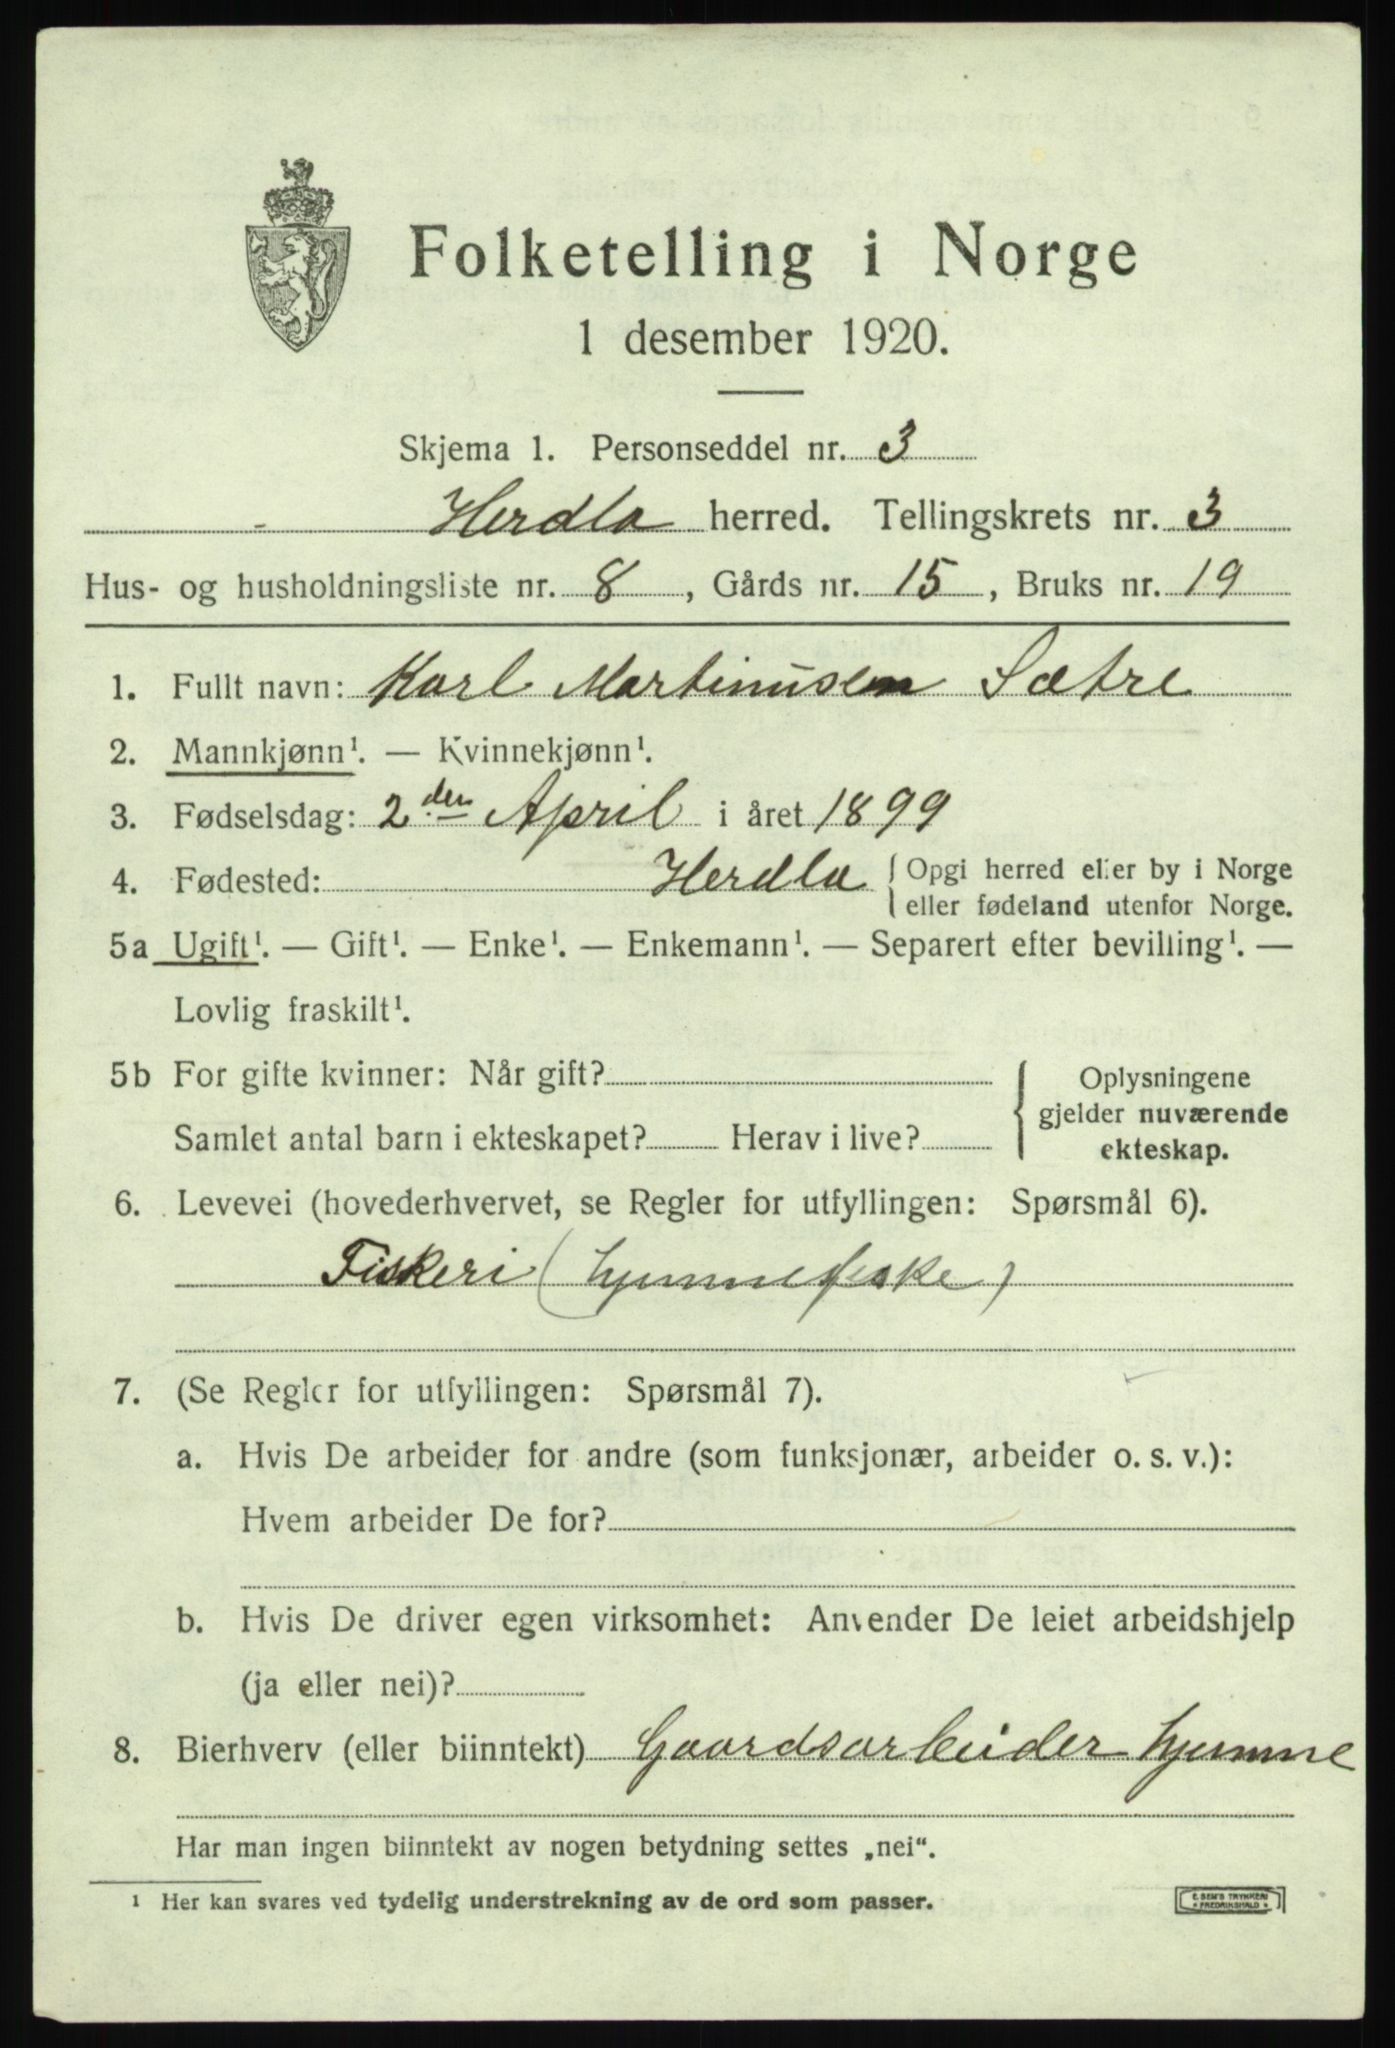 Folketelling i Norge
1 desember 1920.
Skjema 1. Personseddel nr. 3
Herdla herred. Tellingskrets nr. 3
Hus- og husholdningsliste nr. 8, Gårds nr. 15, Bruks nr. 19
1. Fullt navn: Karl Martinusen Sætre
2. Mannkjønn¹. — Kvinnekjønn¹.
3. Fødselsdag: 2den April i året 1899
4. Fødested: Herdla { Opgi herred eller by i Norge
eller fødeland utenfor Norge.
5a Ugift¹. — Gift¹. — Enke¹. — Enkemann¹. — Separert efter bevilling¹. —
Lovlig fraskilt¹.
5b For gifte kvinner: Når gift?
Samlet antal barn i ekteskapet? Herav i live?
{ Oplysningene
gjelder nuværende
ekteskap.
6. Levevei (hovederhvervet, se Regler for utfyllingen: Spørsmål 6).
Fiskeri (hjemmefiske)
7. (Se Regler for utfyllingen: Spørsmål 7).
a. Hvis De arbeider for andre (som funksjonær, arbeider o. s. v.):
Hvem arbeider De for?
b. Hvis De driver egen virksomhet: Anvender De leiet arbeidshjelp
(ja eller nei)?
8. Bierhverv (eller biinntekt) Gaardsarbeider hjemme
Har man ingen biinntekt av nogen betydning settes „nei“.
¹ Her kan svares ved tydelig understrekning av de ord som passer.
E. SEM'S TRYKKERI
* FREDRIKSHALD *